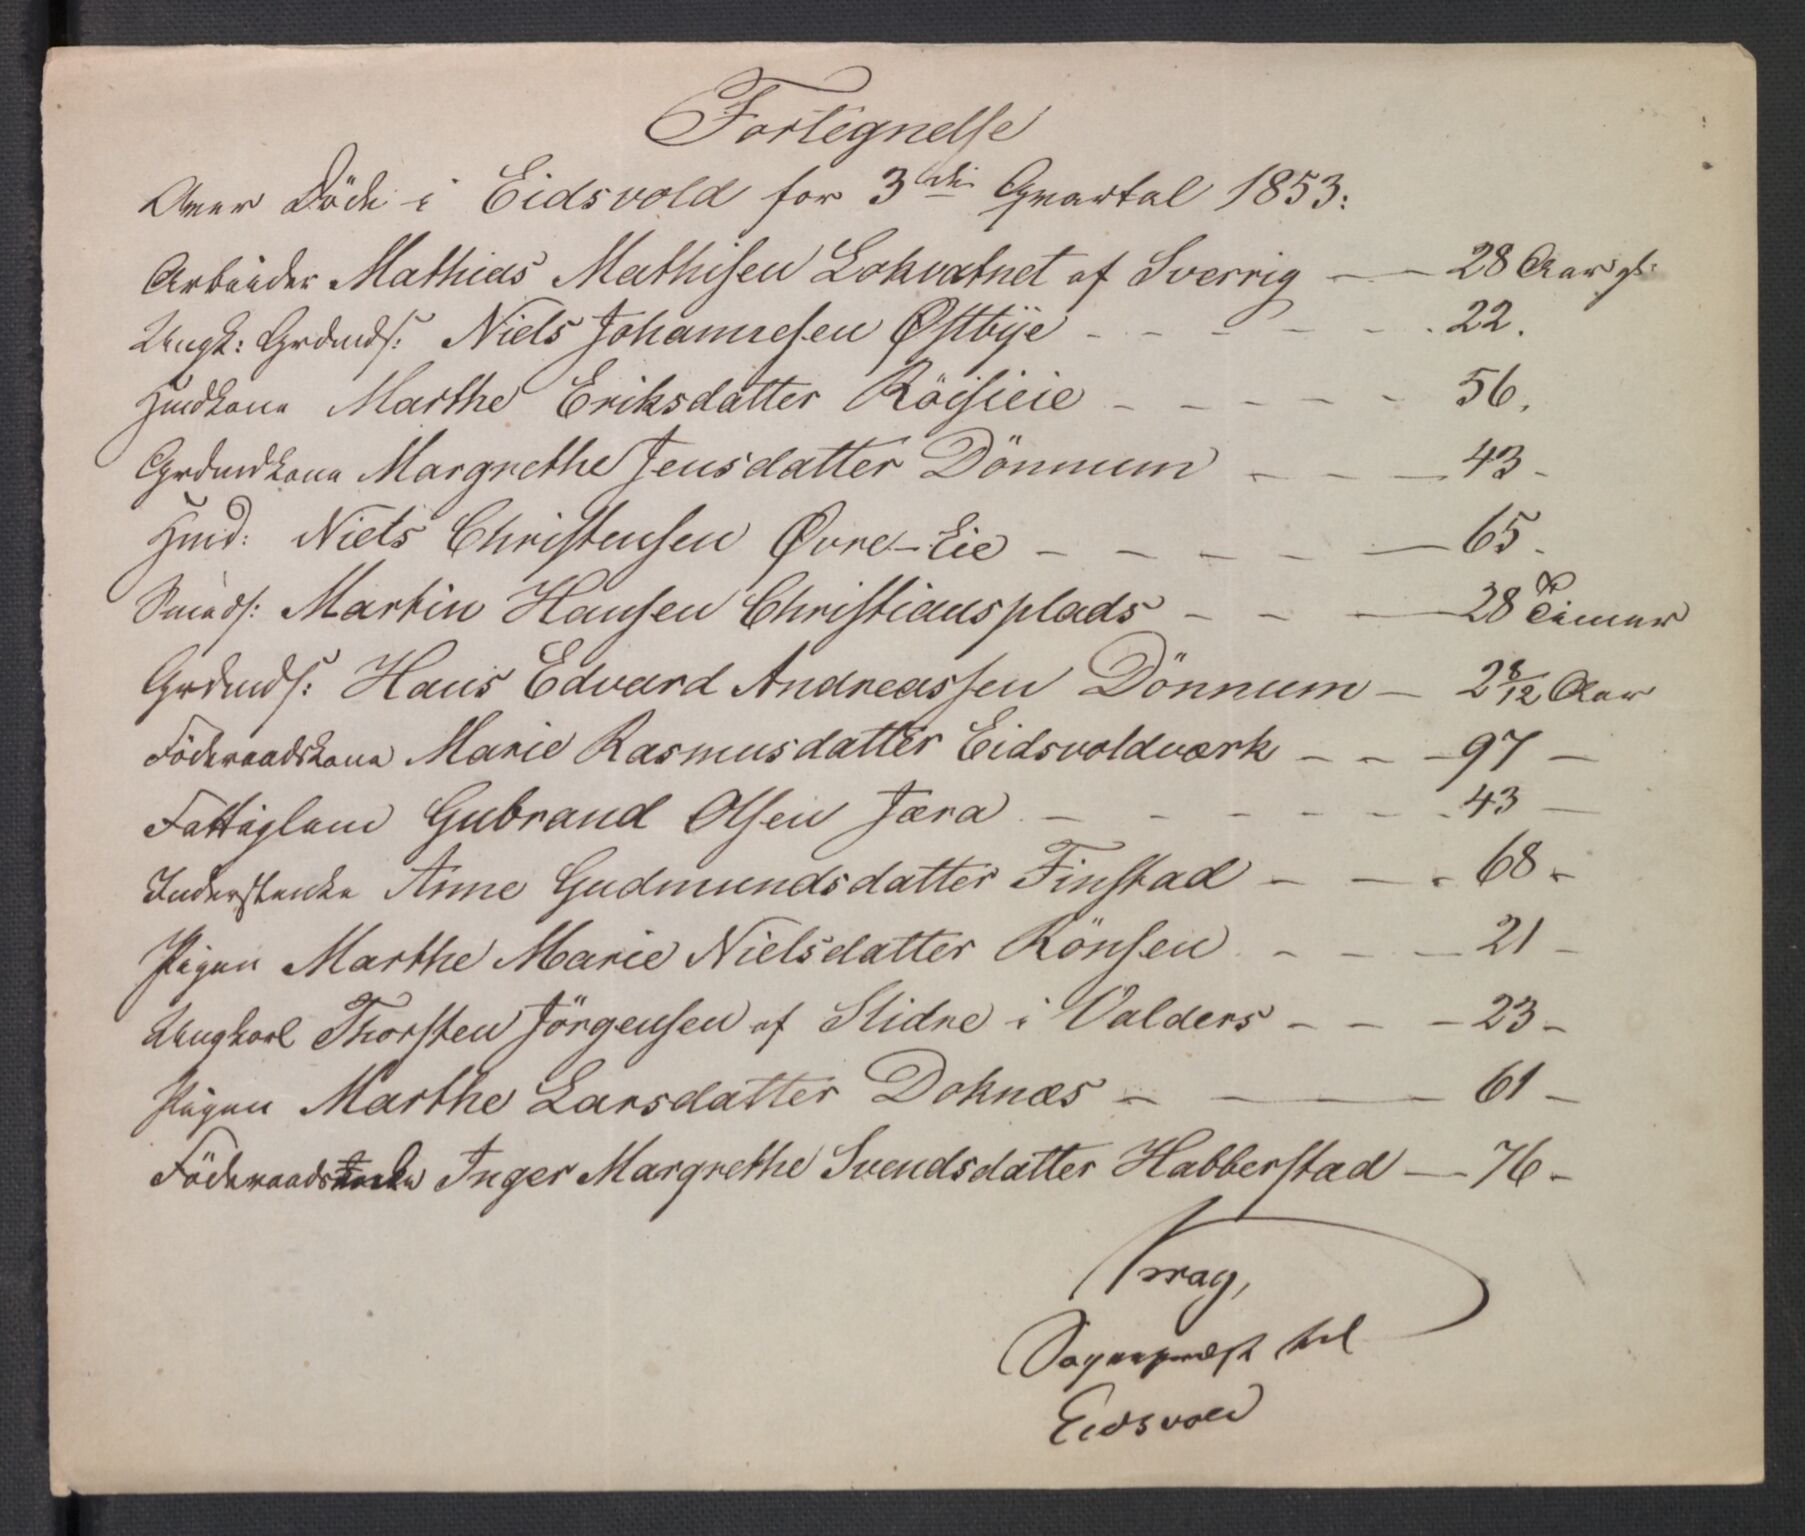 Fortegnelse
Over Döde i Eidsvold for 3die Qvartal 1853:
Arbeider Mathias Mathisen Lokvatnet af Sverrig — — 28 Aar gl:
Ungk: Grdmds: Niels Johannesen Østbye - - - - - 22.
Hmdkone Marthe Eriksdatter Röisieie - - - - - 56.
Grdmdkone Margrethe Jensdatter Dönnum - - — 43 -
Hmd: Niels Christensen Øvre-Eie - - - - — 65 -
Smeds: Martin Hansen Christiansplads - - — 28 Timer
Grdmds: Hans Edvard Andreassen Dönnum — 2 8/12 Aar
Föderaadskone Marie Rasmusdatter Eidsvoldværk - - - 97 —
Fattiglem Gubrand Olsen Jæra - - - - - - 43 —
Inderstenke Anne Gudmundsdatter Finstad - — - 68 -
Pigen Marthe Marie Nielsdatter Rönsen - - — 21 -
Ungkarl Thorsten Jörgensen af Slidre i Valders - - - 23 -
Pigen Marthe Larsdatter Doknæs - — — 61 -
Föderaadsenke Inger Margrethe Svendsdatter Habberstad — 76 -
Krag,
Sognepræst til
Eidsvold